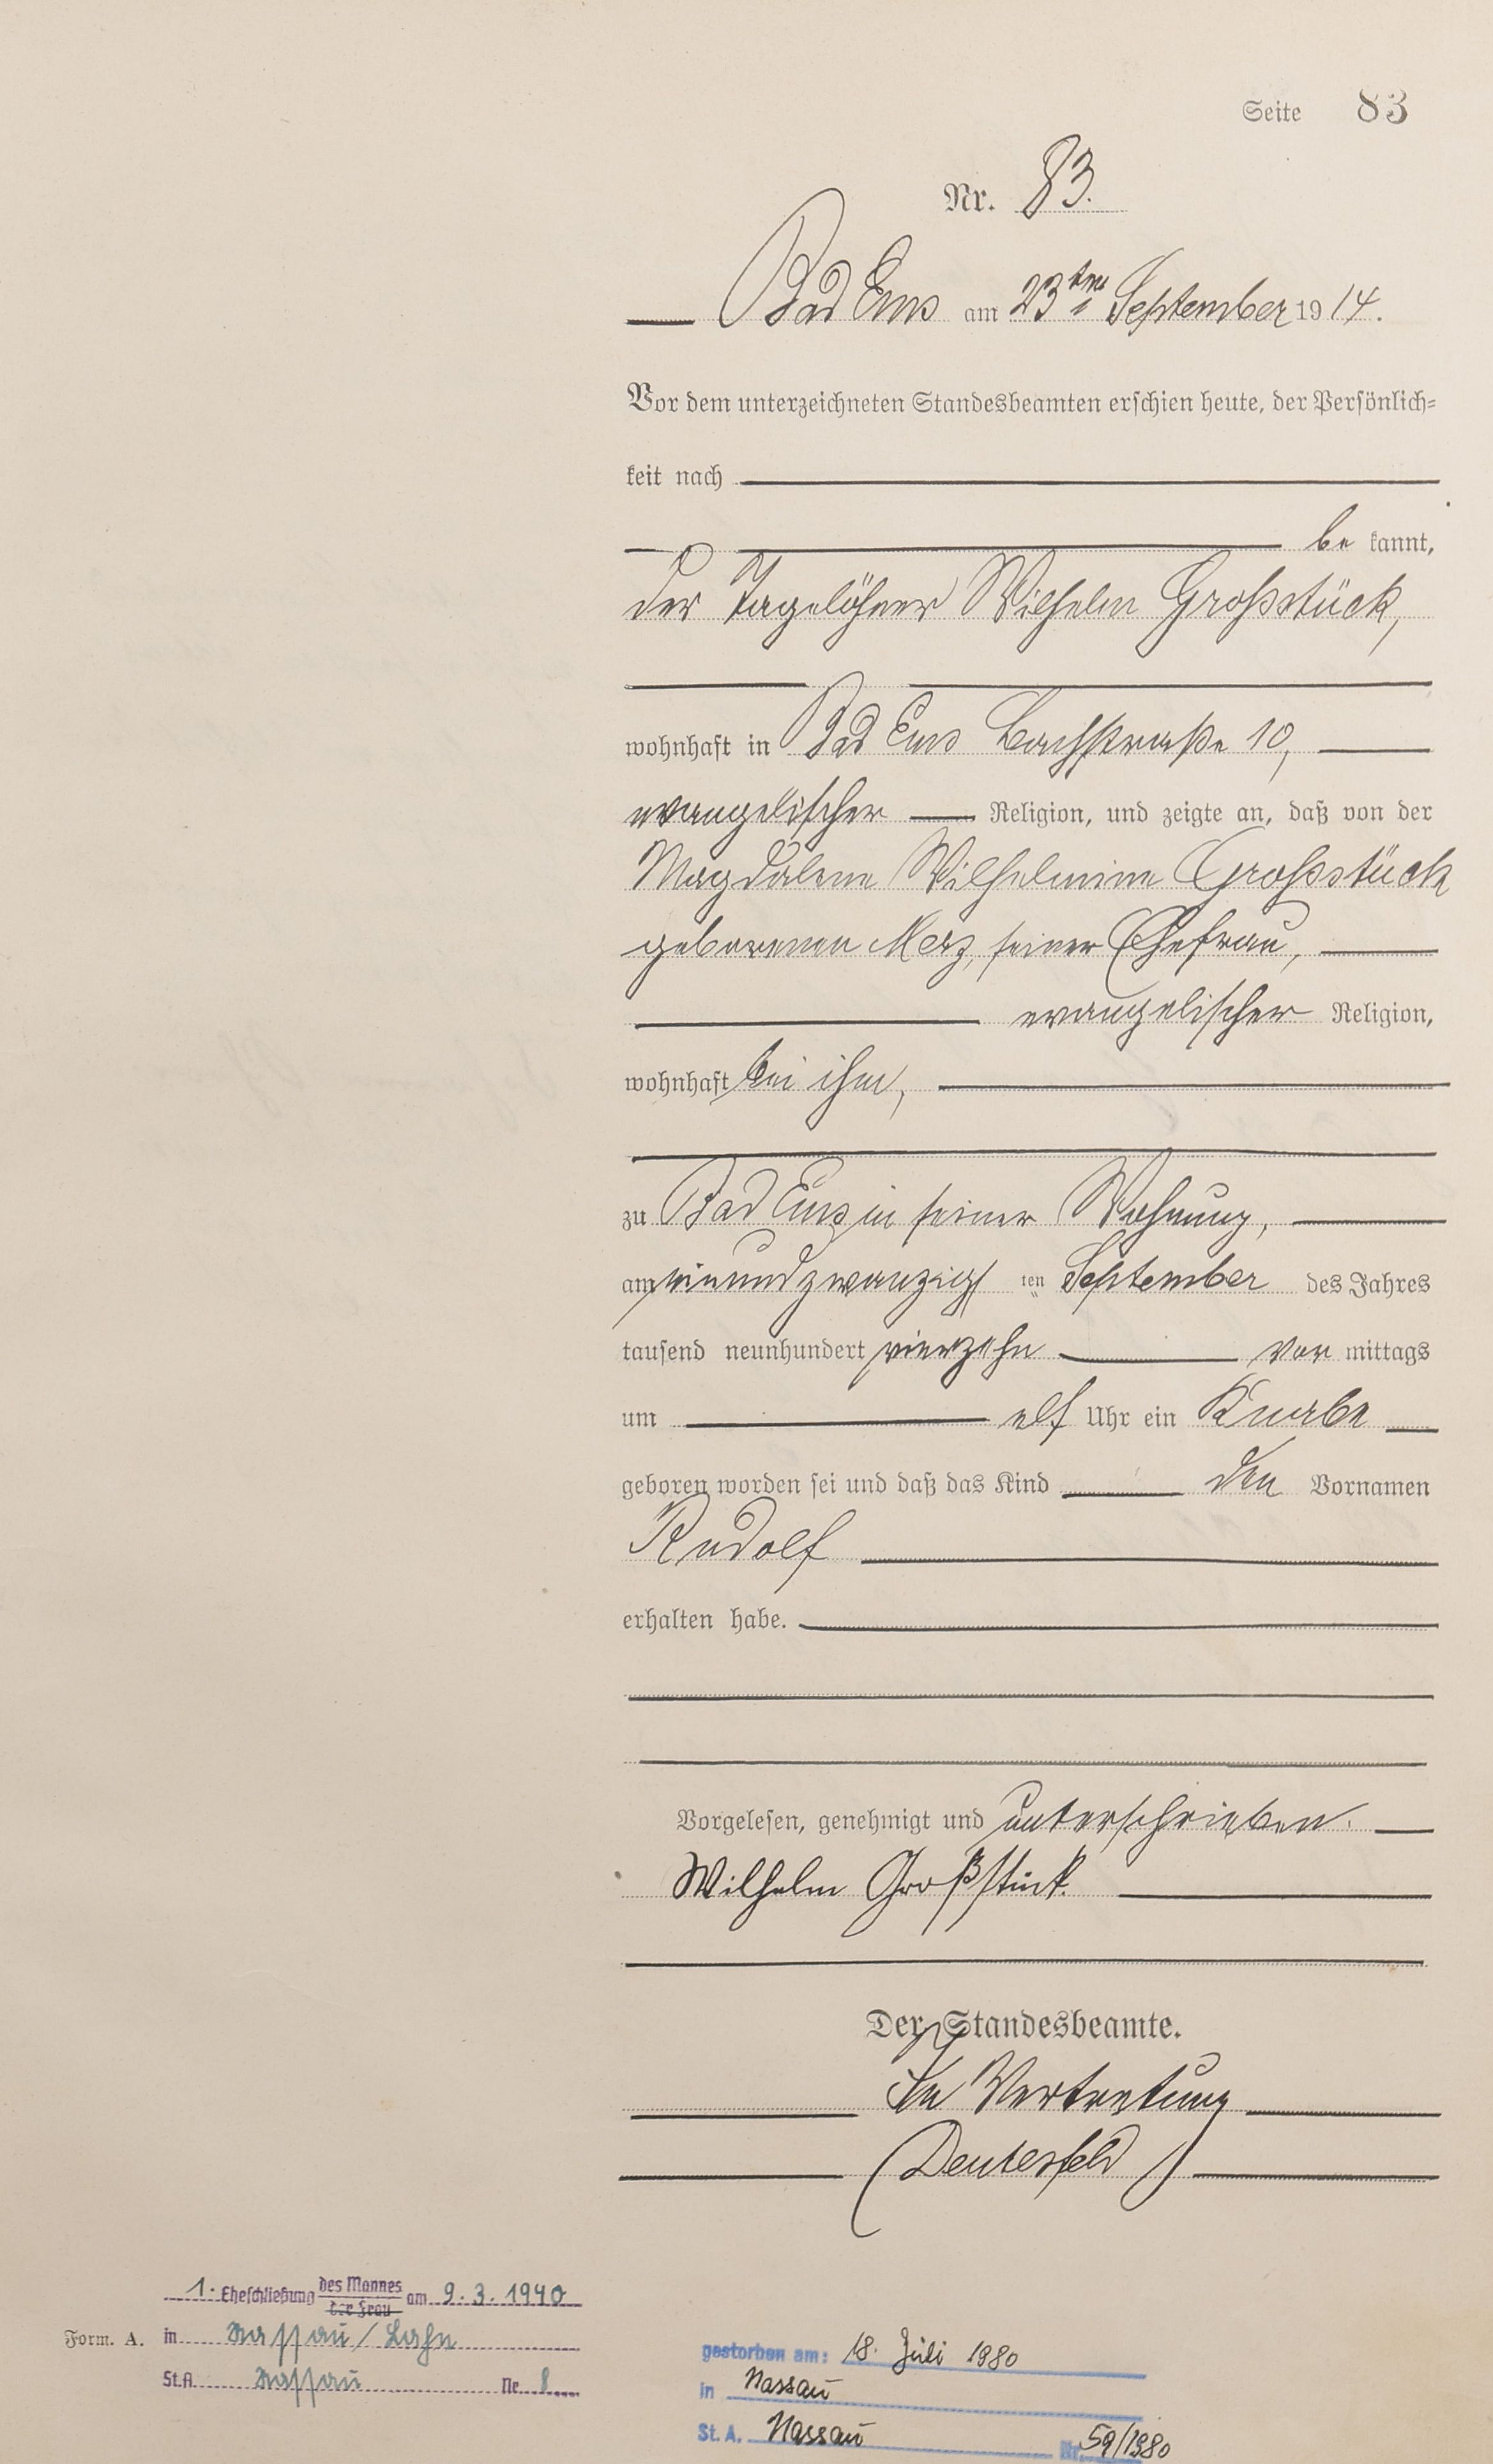 Seite 83
Nr. 83.
Bad Ems am 23ten September 1914.
Vor dem unterzeichneten Standesbeamten erschien heute, der Persönlich=
keit nach
be kannt,
der Tagelöhner Wilhelm Großstück,
wohnhaft in Bad Ems Bachstraße 10,
evangelischer Religion, und zeigte an, daß von der
Magdalene Wilhelmine Großstück
geborenen Merz, seiner Ehefrau,
evangelischer Religion,
wohnhaft bei ihm,
zu Bad Ems in seiner Wohnung,
am einundzwanzig ten September des Jahres
tausend neunhundert vierzehn vor mittags
um elf Uhr ein Knabe
geboren worden sei und daß das Kind den Vornamen
Rudolf
erhalten habe.
Vorgelesen, genehmigt und unterschrieben.
Wilhelm Großstück.
Der Standesbeamte.
In Vertretung
(Deutesfeld)
1. Eheschließung des Mannes der Frau am 9.3.1940
Form. A. in Nassau/Lahn
St.A. Nassau Nr. 8
gestorben am: 18. Juli 1980
in Nassau
St. A. Nassau Nr. 59/1980